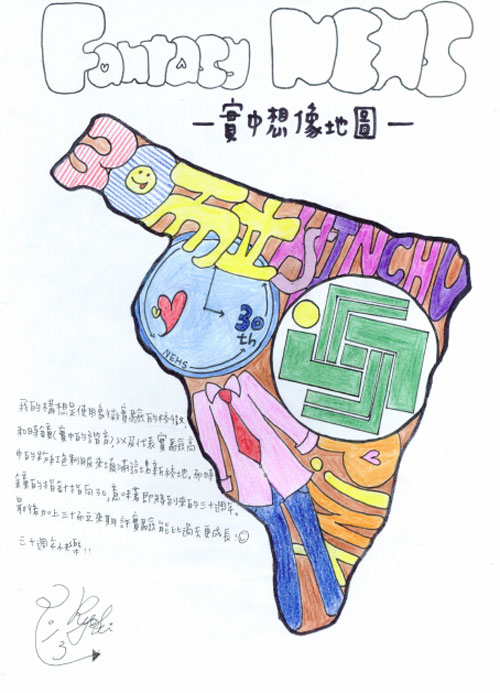 Fantasy NEHS
－實中想像地圖－
30而立
SHINCHU
30th
NEHS
我的構想是使用象徵實驗的校徽
和時鐘(實中的諧音)以及代表實驗高
中的粉紅色制服來填滿這塊新校地。而時
鐘的指針指向30,意味著即將到來的三十週年。
最後加上三十而立來期許實驗能比過去更成長!
三十週年快樂!!
2013